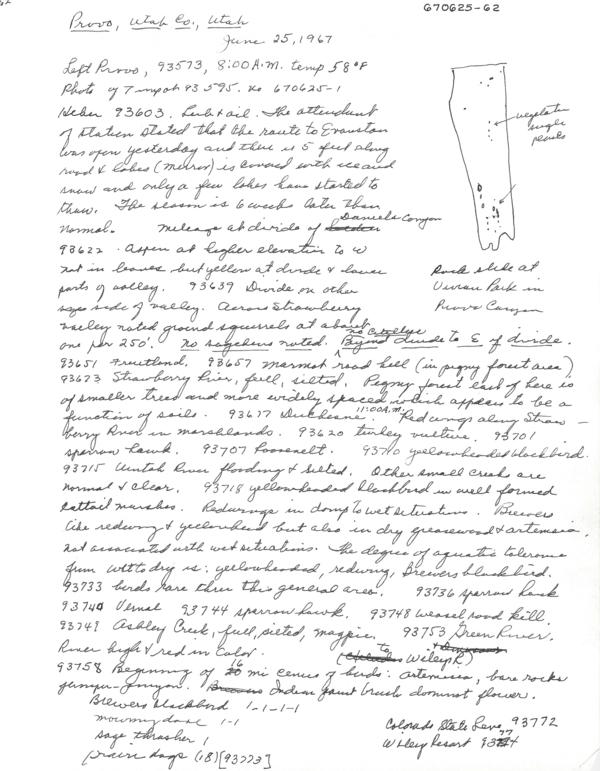 670625-62
Provo, Utah Co., Utah
June 25, 1967
Left Provo, 93573, 8:00 A.M. temp 58°F
Photo of Timp at 93595. no 670625-1
Heber 93603. Lub & oil. The attendant
of station stated that the route to Evanston
was open yesterday and there is 5 feet along
road & lakes (Mirror) is covered with ice and
snow and only a few lakes have started to
thaw. The season is 6 weeks later than
normal. Mileage at divide of Daniels Canyon
93622. Aspen at higher elevation to W
not in leaves but yellow at divide & lower
parts of valley. 93639 Divide on other
side of valley. Across Strawberry
valley noted ground squirrels at about
one per 250'. No sagehens noted. Beyond divide to E of divide.
93651 Fruitland. 93657 marmot road kill (in pygmy forest area)
93673 Strawberry River, full, silted. Pygmy forest east of here is
of smaller trees and more widely spaced which appears to be a
function of soils. 93677 Duchesne 11:00 A.M. Redwings along Straw-
berry River in marshlands. 93620 turkey vulture. 93701
sparrow hawk. 93707 Roosevelt. 93710 yellowheaded blackbird.
93715 Uintah River flooding & silted. Other small creeks are
normal & clear. 93718 yellowheaded blackbird in well formed
cattail marshes. Redwings in damp to wet situations. Brewers
like redwing & yellowhead but also in dry greasewood & artemisia,
not associated with wet situations. The degree of aquatic tolerance
from wet to dry is: yellowheaded, redwing, Brewers blackbird.
93733 birds rare thru this general area. 93736 sparrow hawk
93740 Vernal 93744 sparrow hawk. 93748 weasel road kill.
93749 Ashley Creek, full, silted, magpie. 93753 Green River.
River high & red in color. (to Wiley R)
93758 Beginning of 16 mi census of birds: artemisia, bare rocks
Indian paint brush dominant flower.
Brewers blackbird 1-1-1-1
mourning dove 1-1
sage thrasher 1
prairie dogs (18) [93773]
Colorado State Line 93772
Wiley Resort
vegetation
single
plants
Rock slide at
Vivian Park in
Provo Canyon